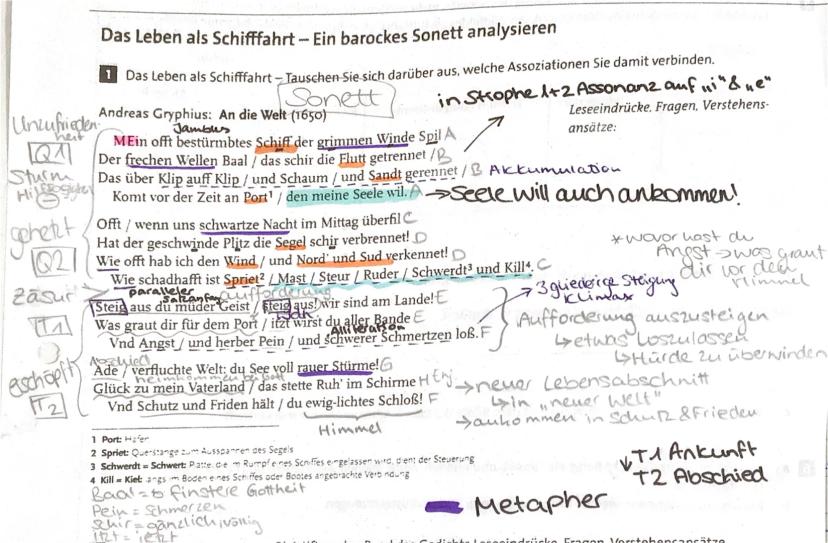 Das Leben als Schifffahrt – Ein barockes Sonett analysieren
1 Das Leben als Schifffahrt – Tauschen Sie sich darüber aus, welche Assoziationen Sie damit verbinden.
Sonett
in Strophe 1+2 Assonanz auf „i" & „e"
Andreas Gryphius: An die Welt (1650)
Leseeindrücke, Fragen, Verstehens-
ansätze:
Unzufrieden-
heit
Jambus
MEin offt bestürmbtes Schiff der grimmen Winde Spil A
Q1
Der frechen Wellen Baal / das schir die Flutt getrennet / B
Das über Klip auff Klip / und Schaum / und Sandt gerennet / B Akkumulation
Sturm
Komt vor der Zeit an Port¹ / den meine Seele wil. A → Seele will auch ankommen!
gehetzt
Offt / wenn uns schwartze Nacht im Mittag überfil C
Hat der geschwinde Plitz die Segel schir verbrennet! D
Q2
Wie offt hab ich den Wind / und Nord' und Sud verkennet! D
Wie schadhafft ist Spriet² / Mast / Steur / Ruder / Schwerdt³ und Kill⁴. C
* wovor hast du
Angst → was graut
dir vor dem
Himmel
Zäsur
paralleler
Satzanfang
aufforderung
Steig aus du müder Geist / steig aus! wir sind am Lande! E
→ 3gliedrige Steigung
Klimax
T1
Was graut dir für dem Port / itzt wirst du aller Bande E
Alliteration
Vnd Angst / und herber Pein / und schwerer Schmertzen loß. F
Aufforderung auszusteigen
↳ etwas loszulassen
↳ Hürde zu überwinden
erschöpft
Abschied
Ade / verfluchte Welt: du See voll rauer Stürme! G
Glück zu mein Vaterland / das stette Ruh' im Schirme H
→ neuer Lebensabschnitt
T2
Vnd Schutz und Friden hält / du ewig-lichtes Schloß! F
↳ in "neuer Welt"
→ ankommen in Schutz & Frieden
Himmel
1 Port: Hafen
2 Spriet: Querstange zum Ausspannen des Segels
3 Schwerdt = Schwert: Platte, die im Rumpf eines Schiffes eingelassen wird, dient der Steuerung
4 Kill = Kiel: längs im Boden eines Schiffes oder Bootes angebrachte Verbindung
↓ T1 Ankunft
T2 Abschied
Baal => finstere Gottheit
Pein = Schmerzen
Schir = gänzlich, völlig
Itzt = jetzt
Metapher